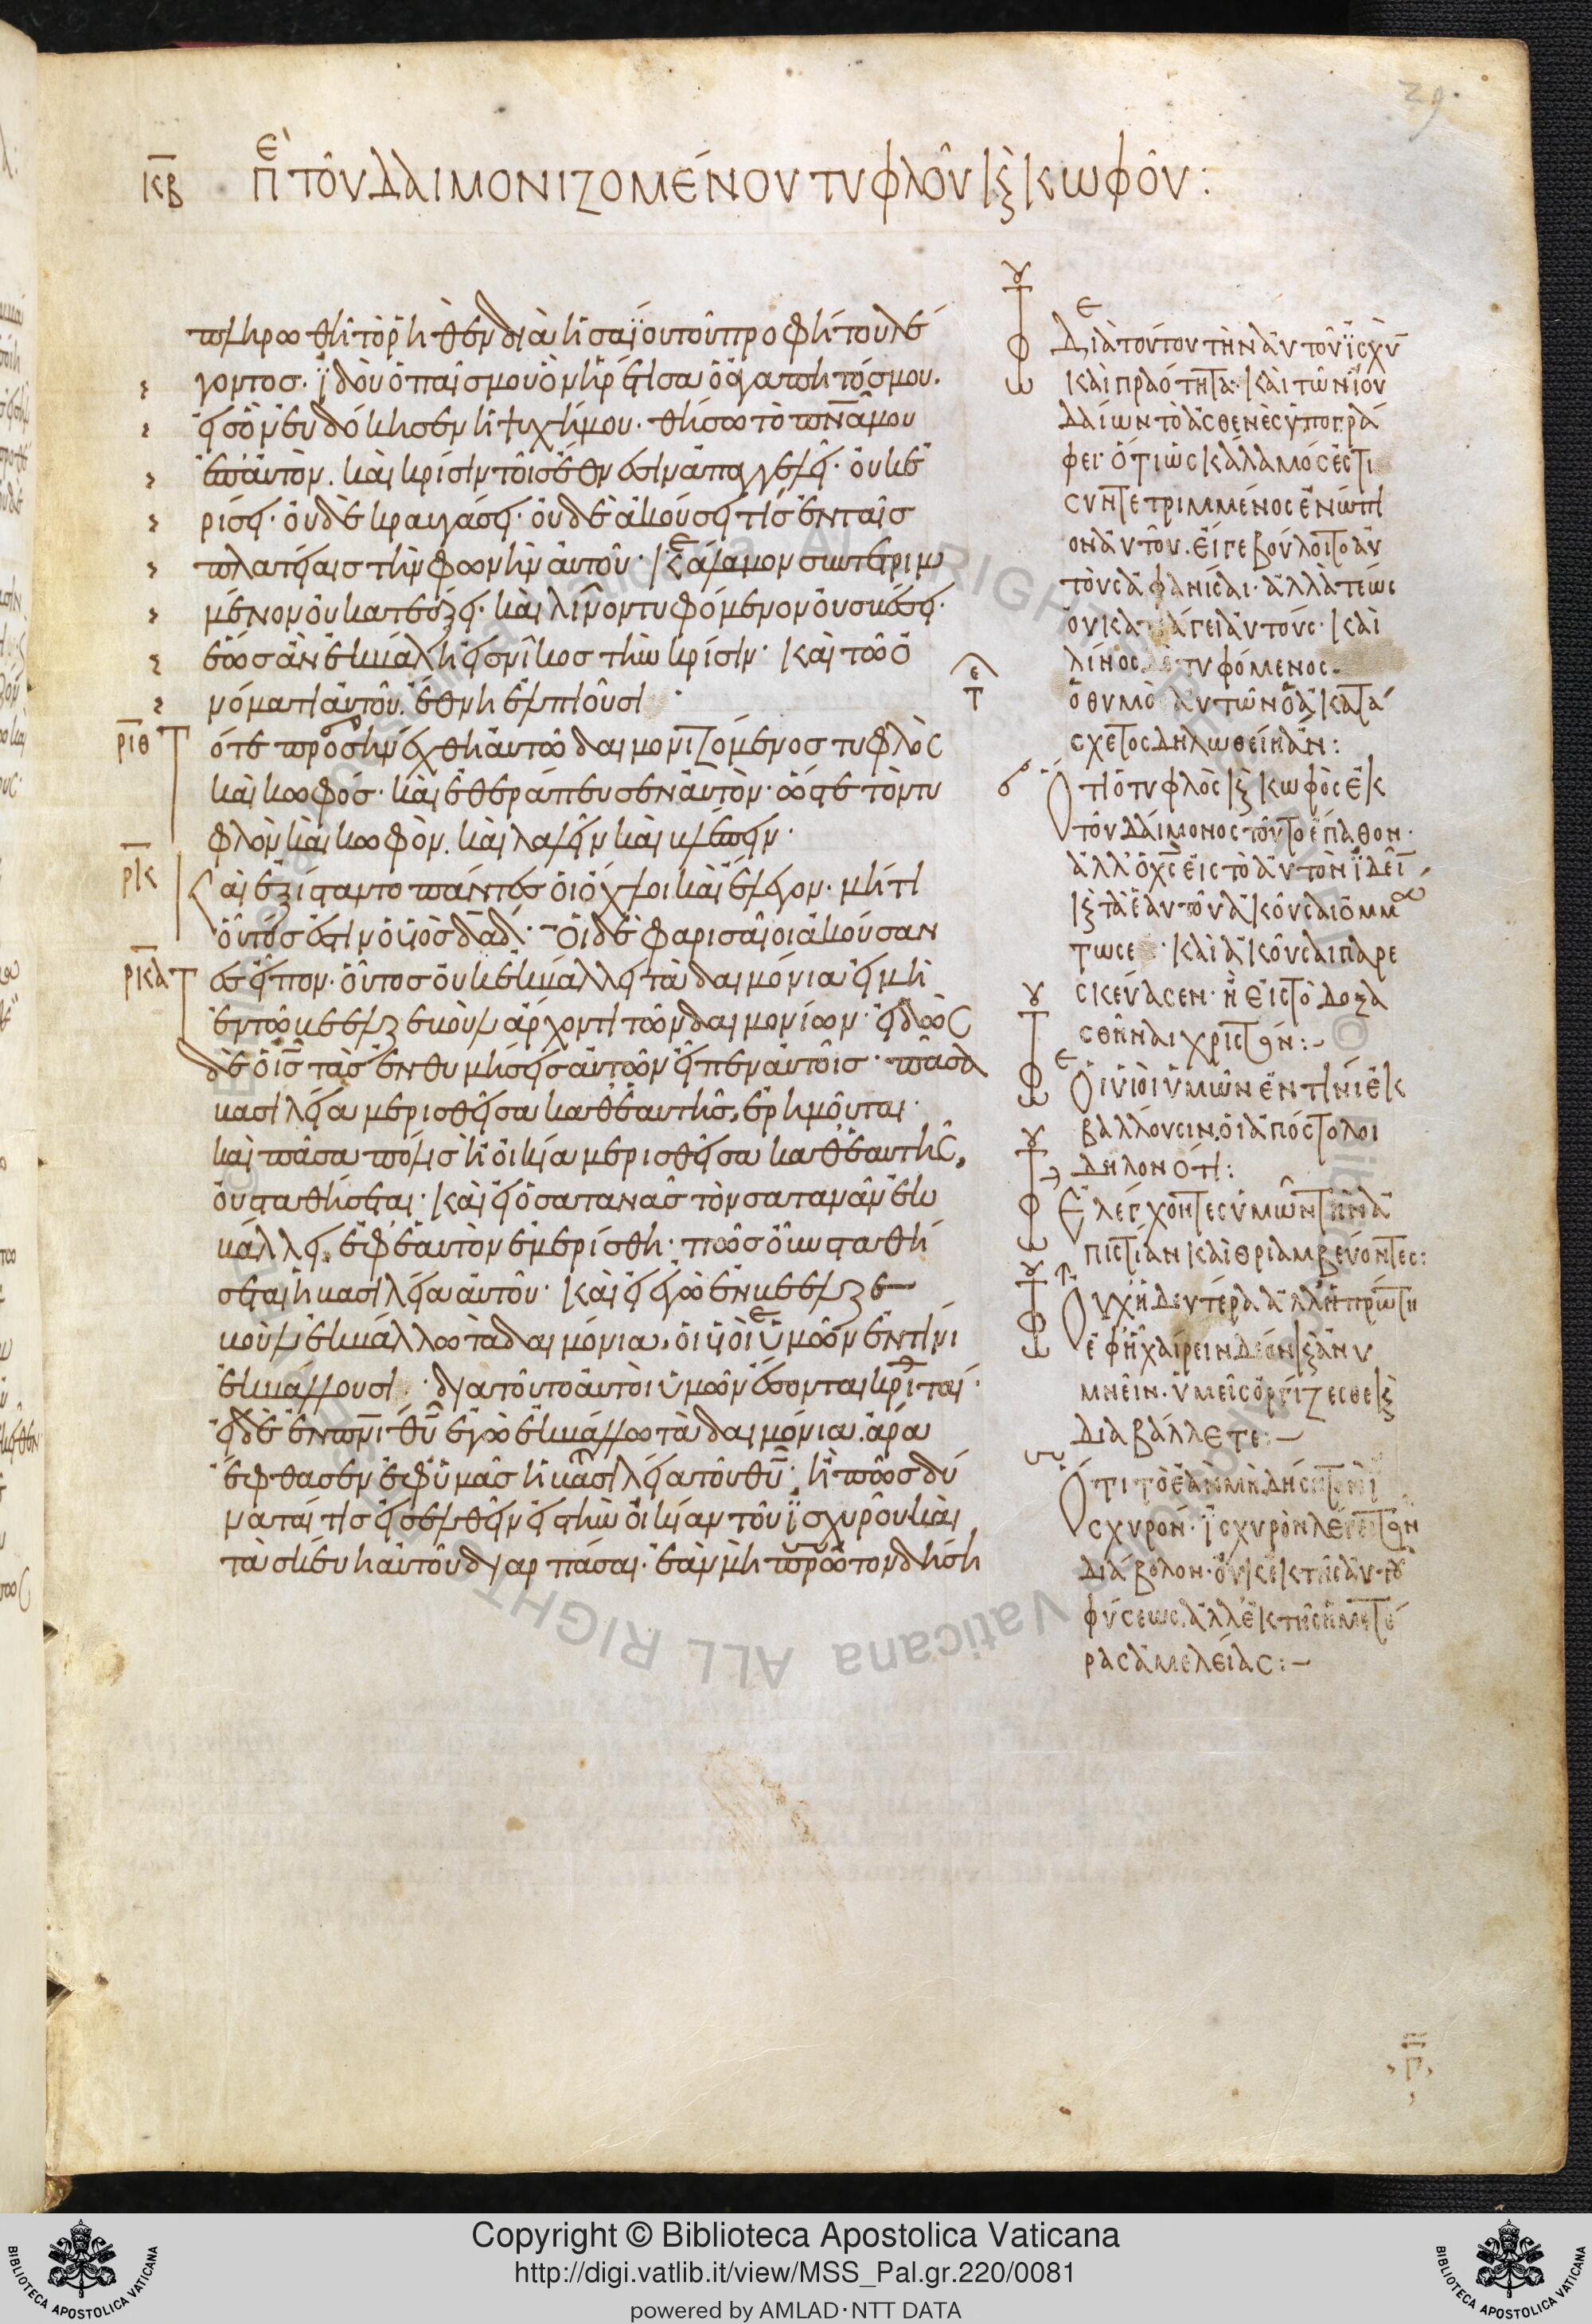 29
κβ πε τοῦ δαιμονιζομένου τυφλοῦ κς κωφοῦ:
πληρωθῆ τὸ ῥηθὲν διὰ ἠσαΐου τοῦ προφήτου λέ
γοντος· ἰδοὺ ὁ παῖς μου ὃν ἡρέτισα ὁ ἀγαπητός μου·
εἰς ὃν εὐδόκησεν ἡ ψυχή μου· θήσω τὸ πνᾶ μου
ἐπ' αὐτὸν. καὶ κρίσιν τοῖς ἔθνεσιν ἀπαγγελεῖ· οὐκ ἐ
ρίσει· οὐδὲ κραυγάσει· οὐδὲ ἀκούσει τίς ἐν ταῖς
πλατείαις τὴν φωνὴν αὐτοῦ· κάλαμον συντετριμ
μένον οὐ κατεάξει· καὶ λῖνον τυφόμενον οὐ σβέσει·
ἕως ἂν ἐκβάλη εἰς νῖκος τὴν κρίσιν· καὶ τῶ ὀ
νόματι αὐτοῦ. ἔθνη ἐλπιοῦσι·
ριθ Τότε προσηνέχθη αὐτῶ δαιμονιζόμενος τυφλὸς
καὶ κωφός· καὶ ἐθεράπευσεν αὐτὸν· ὥστε τὸν τυ
φλὸν καὶ κωφὸν. καὶ λαλεῖν καὶ βλέπειν·
ρκ Καὶ ἐξίσταντο πάντες οἱ ὄχλοι καὶ ἔλεγον· μήτι
οὗτός ἐστιν ὁ υἱὸς δαδ· Οἱ δὲ φαρισαῖοι ἀκούσαν
ρκα Τες εἶπον· οὗτος οὐκ ἐκβάλλει τὰ δαιμόνια εἰ μὴ
ἐν τῶ βεελζεβοὺλ ἄρχοντι τῶν δαιμονίων· εἰδὼς
δὲ ὁ ις τὰς ἐνθυμήσεις αὐτῶν εἶπεν αὐτοῖς· πᾶσα
βασιλεία μερισθεῖσα καθ' ἑαυτῆς, ἐρημοῦται·
καὶ πᾶσα πόλις ἢ οἰκία μερισθεῖσα καθ' ἑαυτῆς,
οὐ σταθήσεται· καὶ εἰ ὁ σατανᾶς τὸν σατανᾶν ἐκ
βάλλει, ἐφ' ἑαυτὸν ἐμερίσθη· πῶς οὖν σταθή
σεται ἡ βασιλεία αὐτοῦ· καὶ εἰ ἐγὼ ἐν βεελζε
βοὺλ ἐκβάλλω τὰ δαιμόνια, οἱ υἱοὶ ὑμῶν ἐν τίνι
ἐκβάλλουσι· διὰ τοῦτο αὐτοὶ ὑμῶν ἔσονται κριταί·
εἰ δὲ ἐν πνι θυ ἐγὼ ἐκβάλλω τὰ δαιμόνια. ἄρα
ἔφθασεν ἐφ' ὑμᾶς ἡ βασιλεία τοῦ θυ· ἢ πῶς δύ
ναταί τις εἰσελθεῖν εἰς τὴν οἰκίαν τοῦ ἰσχυροῦ καὶ
τὰ σκεύη αὐτοῦ διαρπάσαι· ἐὰν μὴ πρῶτον δήση
Διὰ τούτου τὴν αὐτοῦ ἰσχὺν
καὶ πραότητα· καὶ τῶν ἰου
δαίων τὸ ἀσθενὲς ὑπογρά
φει· ὅτι ὡς κάλαμός ἐστι
συντετριμμένος ἐνώπι
ον αὐτοῦ. εἴγε βούλοιτο ἂν
τοὺς ἀφανίσαι· ἀλλὰ τέως
οὐ αὐτούς· καὶ
λίνος τυφόμενος·
ὁ θυμὸ αὐτῶν ὁ ἀκατά
σχετος δηλωθείη ἄν:
Ὅτι ὁ τυφλὸς κς κωφὸς ἐκ
τοῦ δαίμονος τοῦτο ἔπαθον·
ἀλλ' ὁ χς εἰς τὸ αὐτὸν ἰδεῖ
κς τὰ ἑαυτοῦ ἀκοῦσαι ὀμμα
τωσε· καὶ ἀκοῦσαι παρε
σκεύασεν· ἢ εἰς τὸ δοξα
σθῆναι χριστόν:~
Οἱ υἱοὶ ὑμῶν ἐν τίνι ἐκ
βάλλουσιν, οἱ ἀπόστολοι
δῆλον ὅτι:
Ἐλέγχοντες ὑμῶν τὴν ἀ
πιστίαν καὶ θριαμβεύοντες:
Οὐχ ἡ δευτέρα ἀλλ' ἡ πρώτη
ἐφ' ἧ χαίρειν δέον κς ἀνυ
μνεῖν· ὑμεῖς ὀργίζεσθε κς
διαβάλλετε:~
Ὅτι τὸ ἐὰν μὴ δήση τὸν ἰ
σχυρόν· ἰσχυρὸν λέγει τὸν
διάβολον· οὐκ ἐκ τῆς αὐτοῦ
φύσεως. ἀλλ' ἐκ τῆς ἡμετέ
ρας ἀμελείας:~
Copyright © Biblioteca Apostolica Vaticana
http://digi.vatlib.it/view/MSS_Pal.gr.220/0081
powered by AMLAD·NTT DATA
BIBLIOTECA APOSTOLICA VATICANA
BIBLIOTECA APOSTOLICA VATICANA